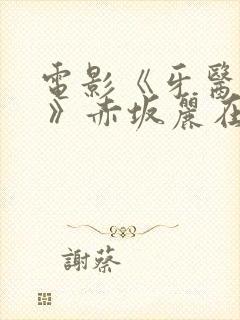 電影《牙醫
》赤坂麗在
謝蔡